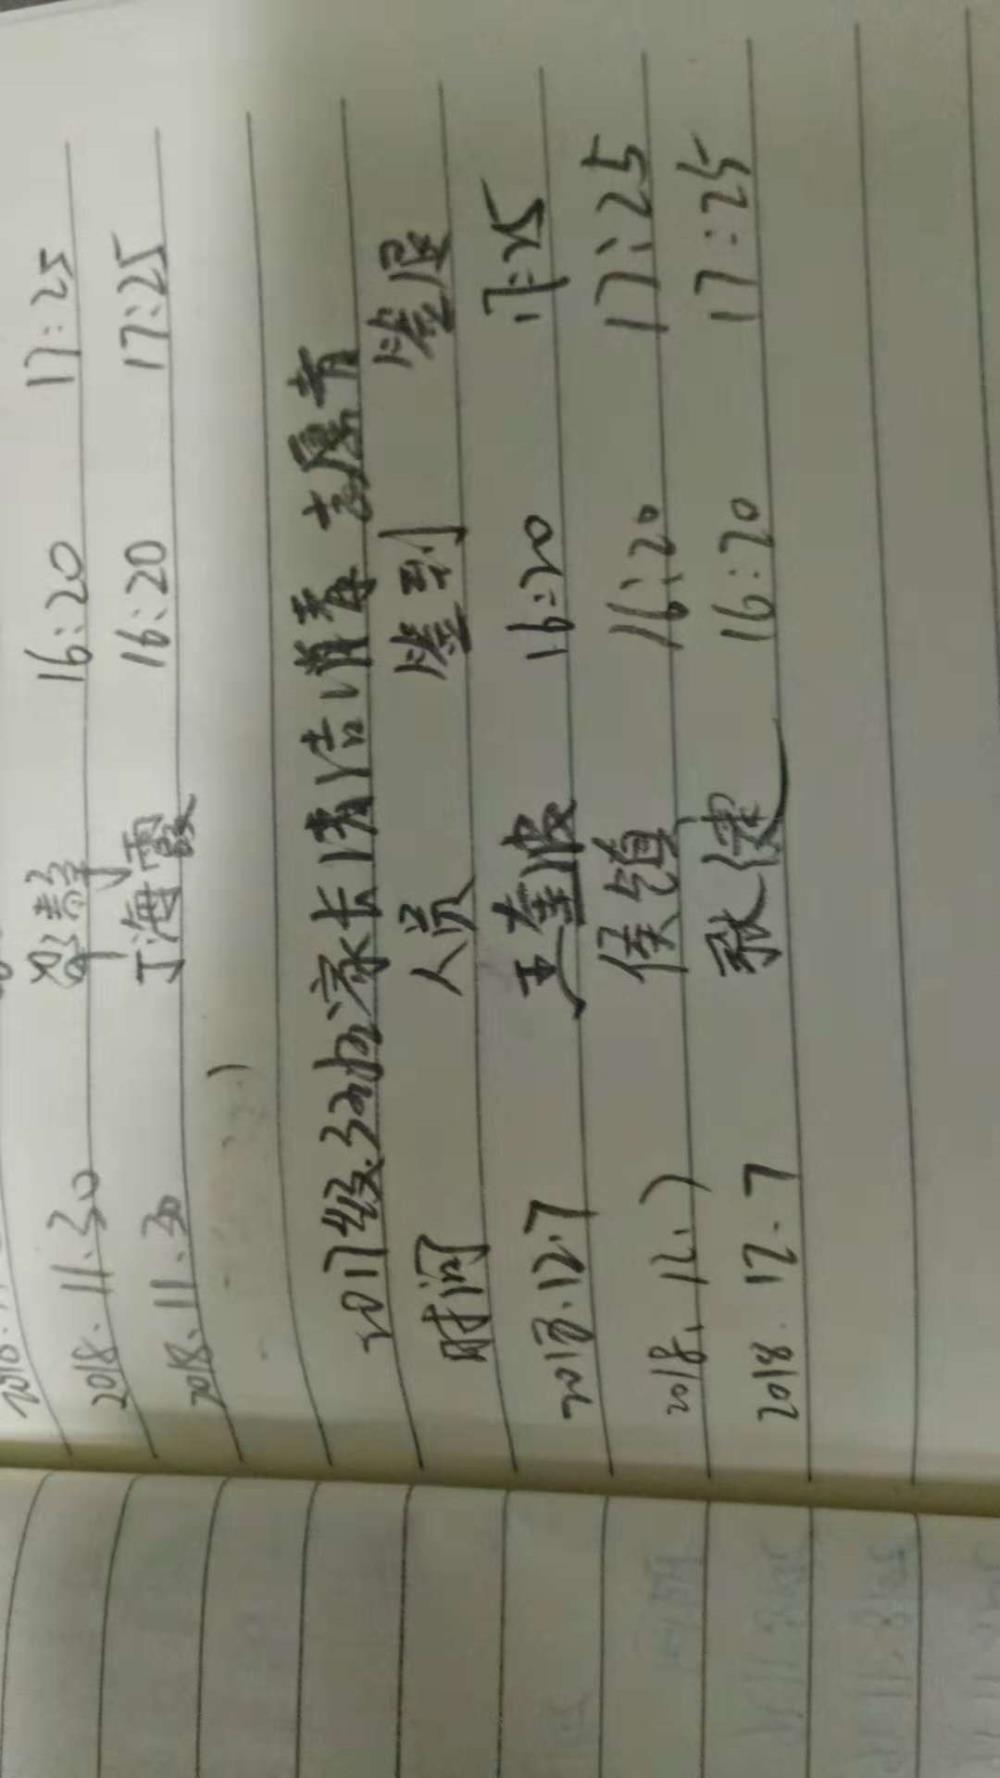 2018.11.30 16:20 17:25
2018.11.30 丁海霞 16:20 17:25
2017级.3班家长清洁消毒志愿者
时间 人员 签到 签退
2018.12.7 王奎波 16:20 17:25
2018.12.7 侯镇 16:20 17:25
2018.12.7 张健 16:20 17:25